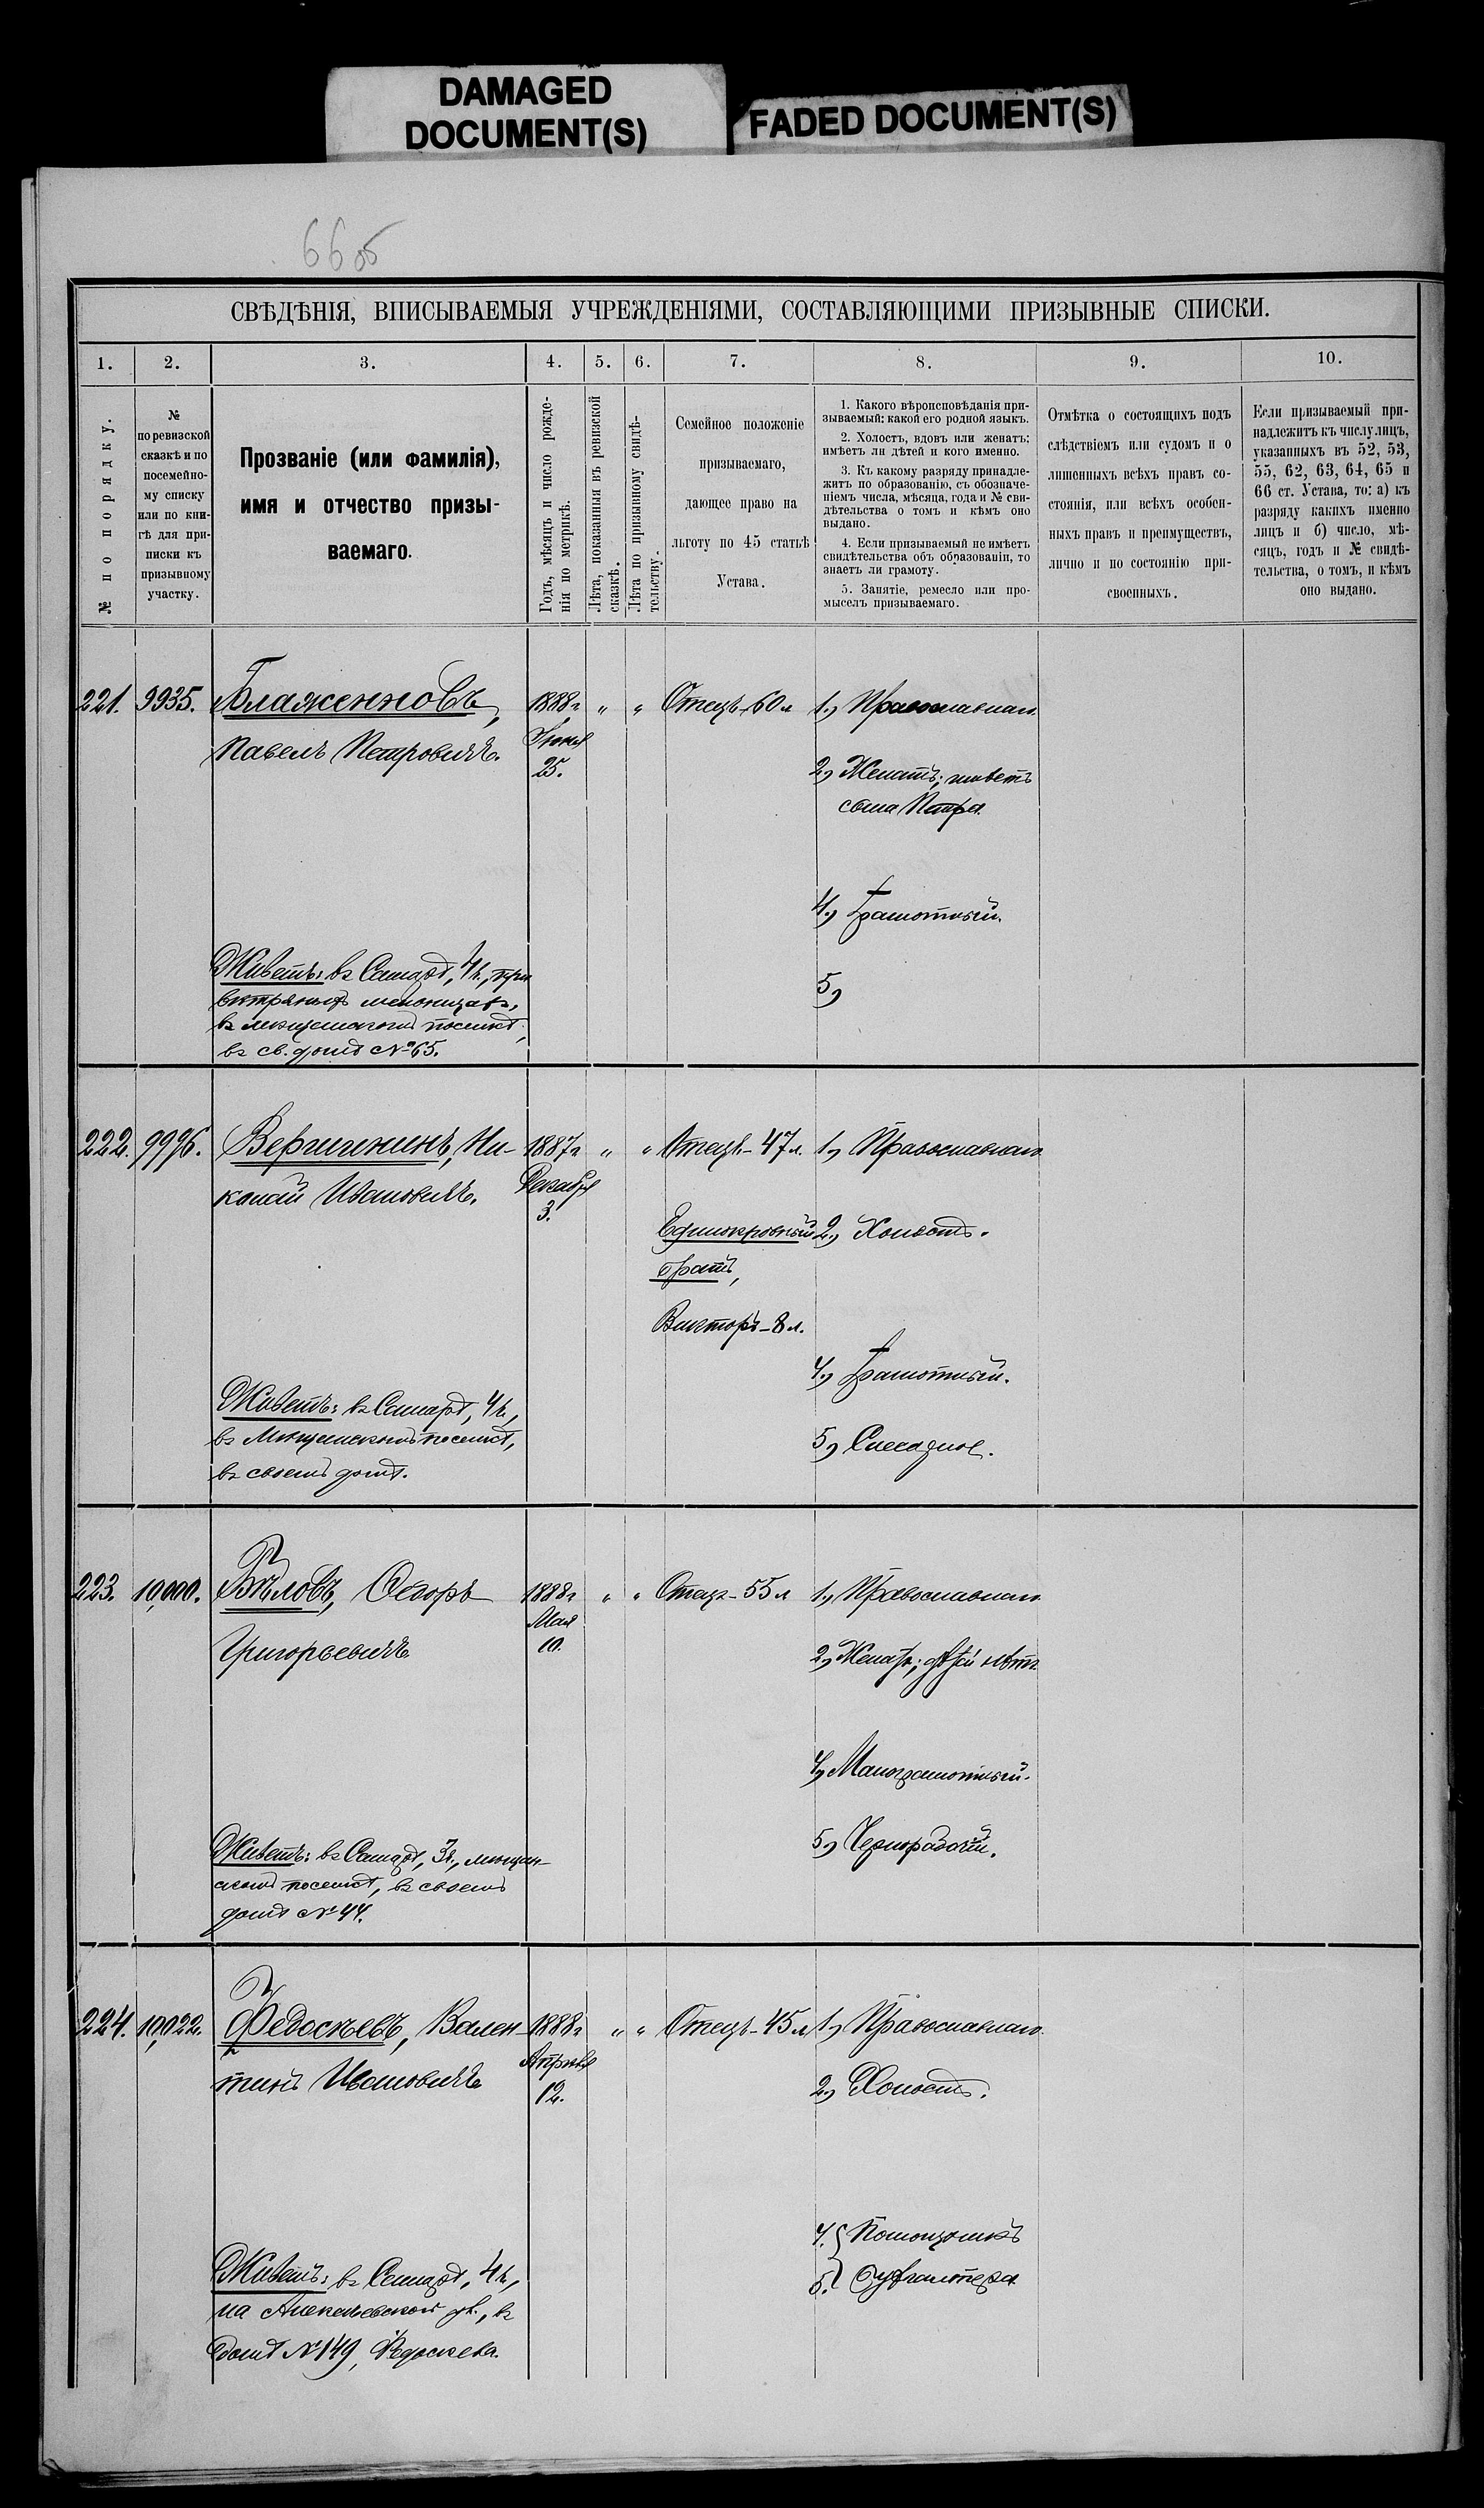 DAMAGED
DOCUMENT(S)
FADED DOCUMENT(S)
66 об
СВѢДѢНІЯ, ВПИСЫВАЕМЫЯ УЧРЕЖДЕНІЯМИ, СОСТАВЛЯЮЩИМИ ПРИЗЫВНЫЕ СПИСКИ.
1.
2.
3.
4.
5.
6.
7.
8.
9.
10.
№ по порядку.
№
по ревизской
сказкѣ и по
посемейно-
му списку
или по кни-
гѣ для при-
писки къ
призывному
участку.
Прозваніе (или фамилія),
имя и отчество призы-
ваемаго.
Годъ, мѣсяцъ и число рожде-
нія по метрикѣ.
Лѣта, показанныя въ ревизской
сказкѣ.
Лѣта по призывному свидѣ-
тельству.
Семейное положеніе
призываемаго,
дающее право на
льготу по 45 статьѣ
Устава.
1. Какого вѣроисповѣданія при-
зываемый: какой его родной языкъ.
2. Холостъ, вдовъ или женатъ:
имѣетъ ли дѣтей и кого именно.
3. Къ какому разряду принадле-
житъ по образованію, съ обозначе-
ніемъ числа, мѣсяца, года и № сви-
дѣтельства о томъ и кѣмъ оно
выдано.
4. Если призываемый не имѣетъ
свидѣтельства объ образованіи, то
знаетъ ли грамоту.
5. Занятіе, ремесло или про-
мыселъ призываемаго.
Отмѣтка о состоящихъ подъ
слѣдствіемъ или судомъ и о
лишенныхъ всѣхъ правъ со-
стоянія, или всѣхъ особен-
ныхъ правъ и преимуществъ,
лично и по состоянію при-
своенныхъ.
Если призываемый при-
надлежитъ къ числу лицъ,
указанныхъ въ 52, 53,
55, 62, 63, 64, 65 и
66 ст. Устава, то: а) къ
разряду какихъ именно
лицъ и б) число, мѣ-
сяцъ, годъ и № свидѣ-
тельства, о томъ, и кѣмъ
оно выдано.
221. 9935. Блаженновъ, 1888г. „ „ Отецъ-60 л 1.) Православнаго.
Павелъ Петровичъ. Іюня
25.
2.) Женатъ; имѣетъ
сына Петра.
4.) Грамотный.
5.)
Живетъ: въ Самарѣ, 4 ч., при
вѣтряныхъ мельницахъ,
въ мѣщанскомъ поселкѣ,
въ св. домѣ № 65.
222. 9996. Ни- 1887г „ „ Отецъ-47 л. 1.) Православнаго
колай Ивановичъ. Декабря
3.
Единокровный 2.) Холостъ.
братъ,
Викторъ-8 л.
4.) Грамотный.
5.) Слесарное.
Живетъ: въ Самарѣ, 4 ч.,
въ Мѣщанскомъ поселкѣ,
въ своемъ домѣ.
223. 10,000. Бѣловъ, Ѳедоръ 1888г „ „ Отецъ-55 л 1.) Православнаго
Григорьевичъ Мая
10.
2.) Женатъ; дѣтей нѣтъ
4.) Малограмотный.
5.) Чернорабочій.
Живетъ: въ Самарѣ, 3 ч., мѣщан-
скомъ поселкѣ, въ своемъ
домѣ № 44.
224. 10,022. Федосѣевъ, Вален- 1888г „ „ Отецъ-45 л 1.) Православнаго.
тинъ Ивановичъ Апрѣля
12.
2.) Холостъ.
4. Помощникъ
5. Бухгалтера
Живетъ: въ Самарѣ, 4 ч.,
на Алексѣевской ул., въ
домѣ № 149, Федосѣева.